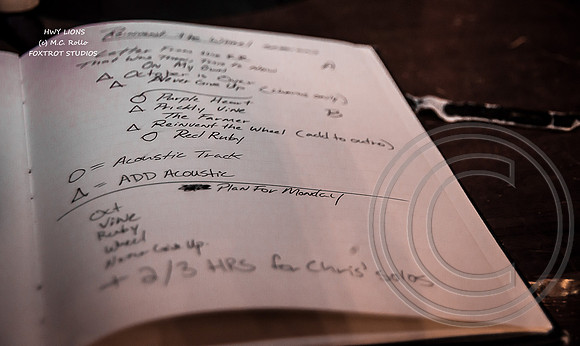 HWY LIONS
(c) M.C. Rollo
FOXTROT STUDIOS
Reinvent the Wheel
Letter From the
That Was Then, This Is Now
On My Own
A
△ October is Over
△ Never Give Up (chorus only)
O Purple Heart
△ Prickly Vine
B
The Farmer
△ Reinvent the Wheel (add to outro)
O Red Ruby
O = Acoustic Track
△ = ADD Acoustic
Plan For Monday
Oct
Vine
Ruby
Wheel
Never Give Up
+ 2/3 HRS for Chris' solos
C